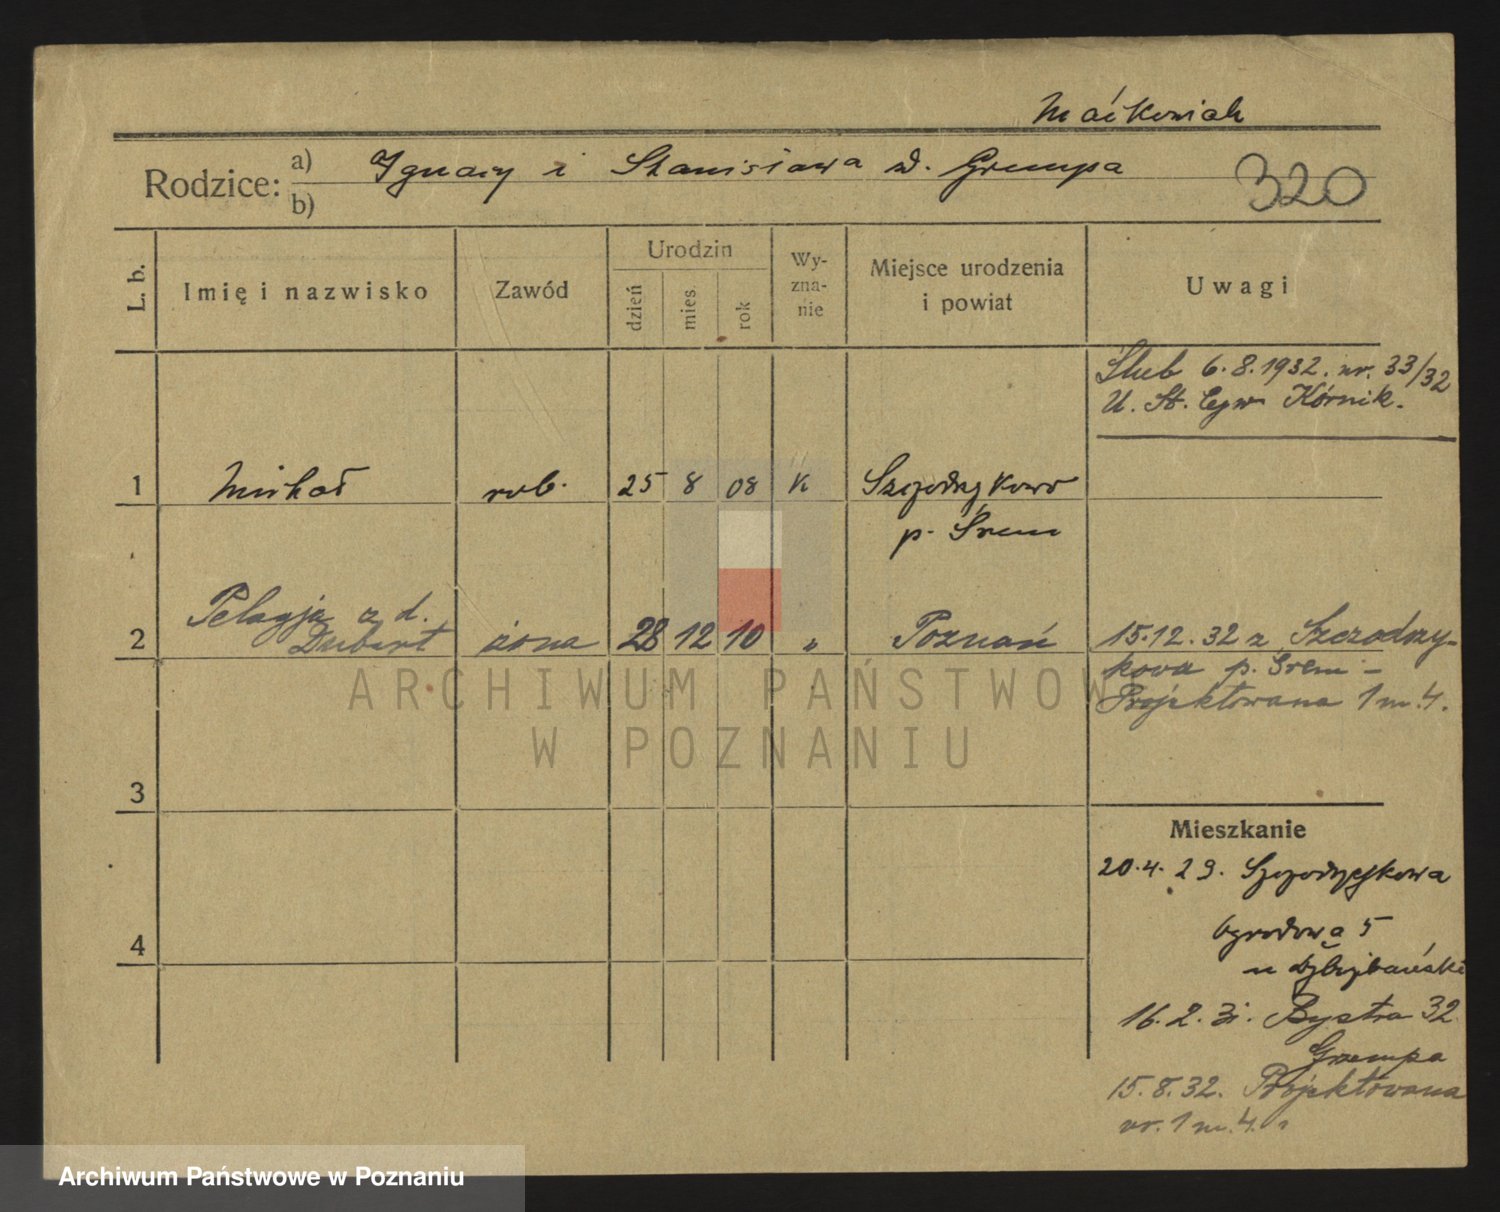 Maćkowiak
Rodzice: a) Ignacy i Stanisława d. Grempa
b)
320
L. b.
Imię i nazwisko
Zawód
Urodzin
dzień
mies.
rok
Wy-
zna-
nie
Miejsce urodzenia
i powiat
Uwagi
Ślub 6.8.1932. nr. 33/32
U. St. Cyw Kórnik.
1 Michał rob. 25 8 08 K Szczodrzykowo
p. Śrem
2 Pelagja z d.
Dubert żona 28 12 10 " Poznań
15.12.32 z Szczodrzy-
kowa p. Śrem -
Projektowana 1 m. 4.
3
4
Mieszkanie
20.4.29. Szczodrzykowa
Ogrodowa 5
u
16.2.31. Bystra 32
Grzempa
15.8.32. Projektowana
nr. 1 m. 4.
ARCHIWUM PAŃSTWOW
W POZNANIU
Archiwum Państwowe w Poznaniu